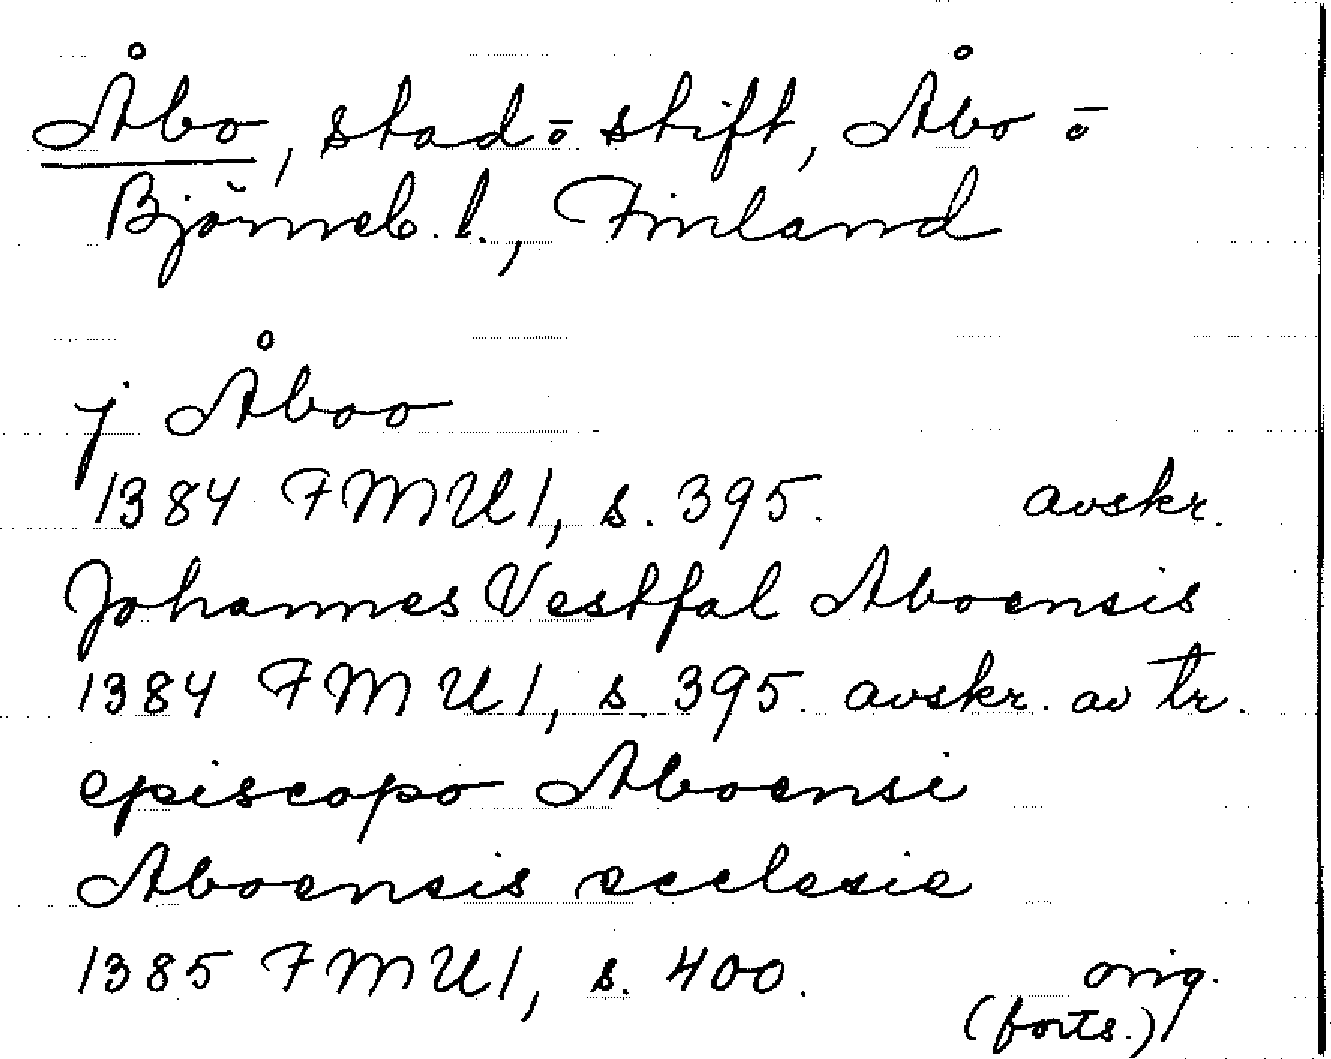 Åbo, stad o stift, Åbo o
Björneb. l., Finland
j Åboo
1384 FMU 1, s. 395. avskr.
Johannes Vestfal Aboensis
1384 FMU 1, s. 395. avskr. av tr.
episcopo Aboensi
Aboensis ecclesie
1385 FMU 1, s. 400. orig.
(forts.)